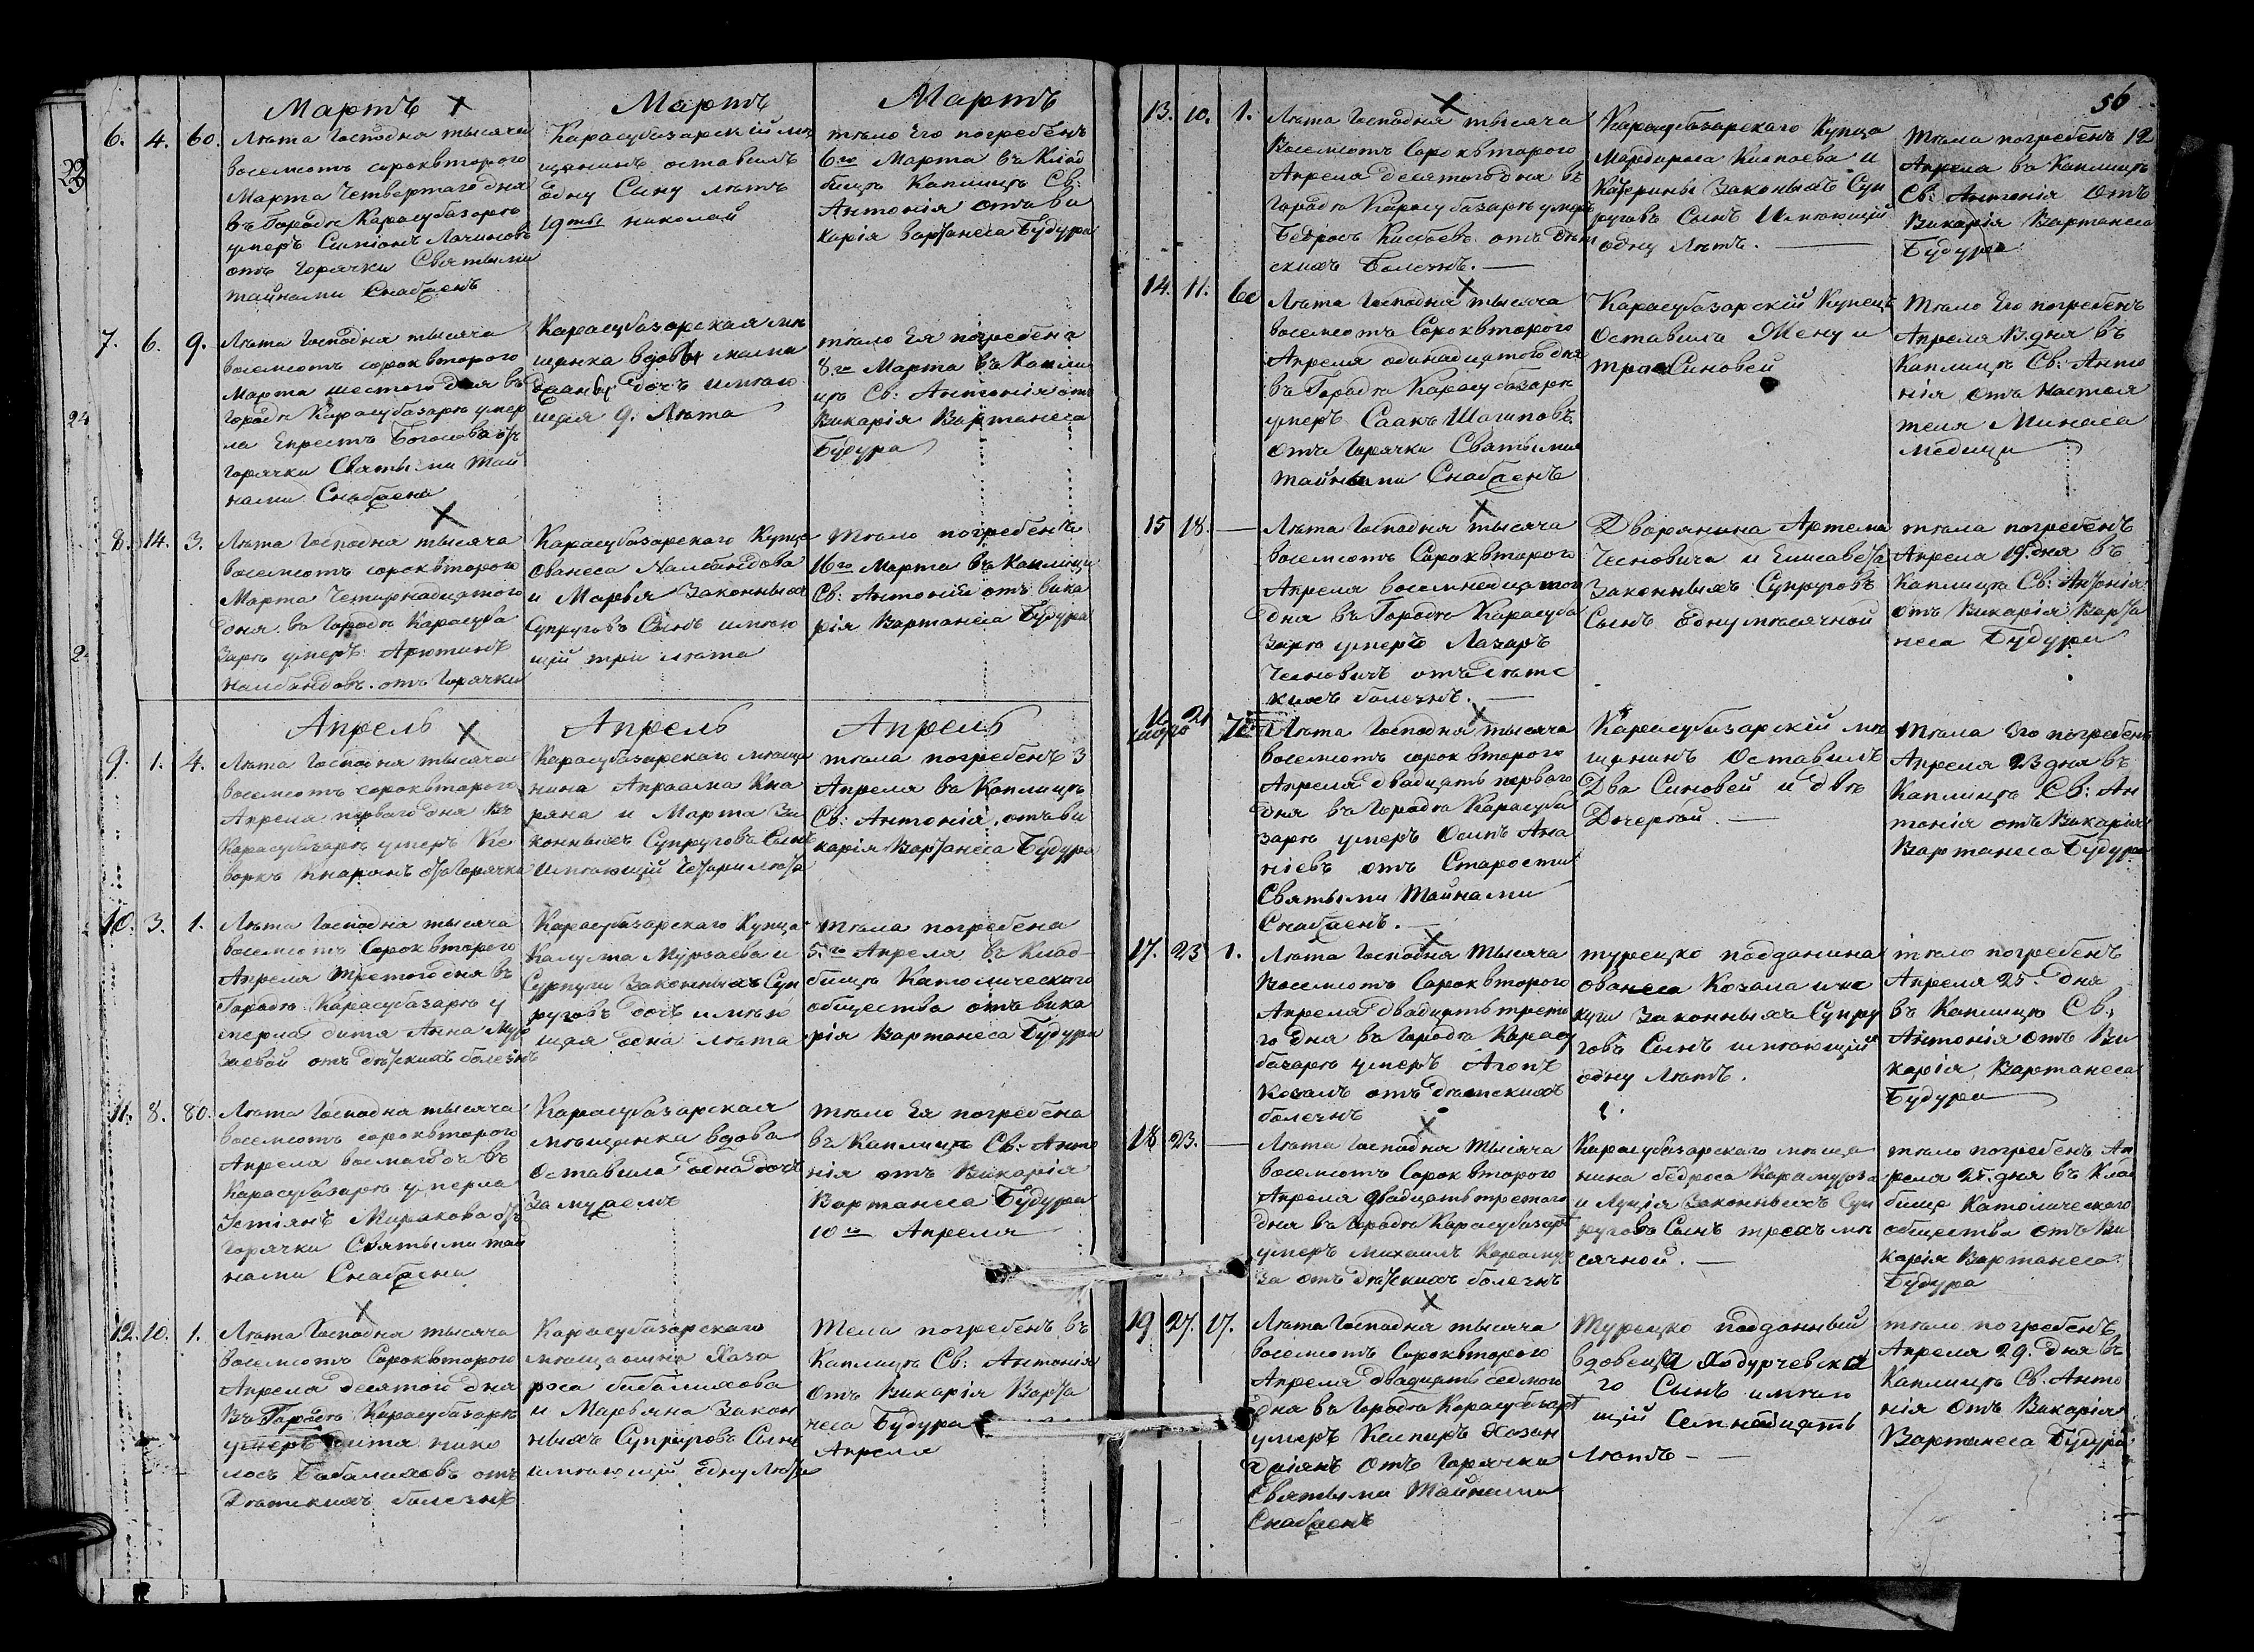 Мартъ Мартъ Мартъ
6. 4. 60.
Лѣта Господня тысяча
восемсотъ сороквторого
Марта Четвертаго дня
въ Городѣ Карасубазарѣ
умеръ Симіонъ Лачиновъ
отъ Горячки Святыми
тайнами Снабденъ
Карасубазарскій мѣ
щенинъ оставилъ
одну Сыну лѣтъ
19ты николай
тѣло Его погребенъ
6го Марта въ Клад
бищѣ Каплицѣ Св:
Антонія отъ ви
карія вартанеса Будура
7. 6. 9.
Лѣта Господня тысяча
восемсотъ сороквторого
Марта шестого дня въ
городѣ Карасубазарѣ умер
ла Епрестъ отъ
горячки Святыми Тай
нами Снабдена
Карасубазарская мѣ
щанка вдовы
дочъ имѣю
щая 9. Лѣта
тѣло Ея погребена
8.го Марта въ Капли
цѣ Св: Антонія отъ
Викарія Вартанеса
Будура
8. 14. 3.
Лѣта Господня тысяча
восемсотъ сороквторого
Марта Четирнадцатого
дня въ Городѣ Карасуба
зарѣ умеръ Арютинъ
Налбандовъ отъ Горячки
Карасубазарского Купца
Ованеса Налбандова
и Марья Законныхъ
Супруговъ Сынъ имѣю
щій три лѣта
Тѣло погребенъ
16го Марта въ Каплицѣ
Св: Антонія отъ вика
рія Вартанеса Будура
Апрель Апрель Апрель
9. 1. 4.
Лѣта Господня тысяча
восемсотъ сороквторого
Апреля первого дня въ
Карасубазарѣ умеръ Ке
воркъ Кнарянъ отъ Горячки
Карасубазарского мѣща
нина Апраама Кна
ряна и Марта За
конныхъ Супруговъ Сынъ
Имѣющій Четари лѣта
тѣла погребенъ 3
Апреля въ Каплицѣ
Св: Антонія, отъ ви
карія Вартанеса Будура
10. 3. 1.
Лѣта Господня тысяча
восемсотъ Сороквторого
Апреля третого дня въ
Городѣ Карасубазарѣ у
мерла дитя Анна Мур
заевой отъ дѣтскихъ болезнъ
Карасубазарского Купца
Калуста Мурзаева и
Сурпуги Законныхъ Суп
руговъ дочъ имѣю
щая одна лѣта
тѣла погребена
5.го Апреля въ Клад-
бищѣ Католического
общества отъ вика
рія Вартанеса Будура
11. 8. 80.
Лѣта Господня тысяча
восемсотъ сороквторого
Апреля восмого въ
Карасубазарѣ умерла
Устіянъ Миракова отъ
горячки Святыми тай
нами Снабдена
Карасубазарская
мѣщанка вдова
Оставила одна дочъ
Замужемъ
тѣло Ея погребена
въ Каплицѣ Св: Анто
нія отъ Викарія
Вартанеса Будура
10го Апреля
12. 10. 1.
Лѣта Господня тысяча
восемсотъ Сороквторого
Апреля десятой дня
Въ Городѣ Карасубазарѣ
умеръ дитя нико
лосъ Бабалиховъ отъ
Дѣтскихъ болезнъ
Карасубазарского
мѣщанина Хаза
роса бабалихова
и Марьяна Закон
ныхъ Супруговъ Сынъ
имѣющій одну лѣта
Тела погребенъ въ
Каплицѣ Св: Антонія
Отъ Викарія Варта
неса Будура
Апреля
56
13. 10. 1.
Лѣта Господня тысяча
Восемсотъ Сороквторого
Апреля десятого дня въ
Городѣ Карасубазарѣ умеръ
Бедросъ Киспоевъ отъ дѣт
скихъ Болезнъ.
Карасубазарскаго Купца
Мардироса Киспоева и
Катерины Законныхъ Суп
руговъ Сынъ Имѣющій
одну Лѣтъ.
Тѣла погребенъ 12
Апреля въ Каплицѣ
Св: Антонія Отъ
Викарія Вартанеса
Будура
14. 11. 60
Лѣта Господня тысяча
восемсотъ Сороквторого
Апреля одинадцатого дня
въ Городѣ Карасубазарѣ
умеръ Саакъ Шагиновъ
отъ Горячки Святыми
тайнами Снабденъ
Карасубазарскій Купецъ
Оставилъ Жену и
трое Синовей
Тѣло Его погребенъ
Апреля 13.дня въ
Каплицѣ Св: Анто
нія отъ Настоя
теля Минаса
Медици
15 18.
Лѣта Господня тысяча
восемсотъ Сороквторого
Апреля восемнадцатого
дня въ Городѣ Карасуба
зарѣ умеръ Лазаръ
Чесновичъ отъ дѣтс
кихъ болезнъ.
Дворянина Артема
Чесновича и Елисавета
Законныхъ Супруговъ
Сынъ Одну мѣсячной
тѣла погребенъ
Апреля 19.дня въ
Каплицѣ Св: Антонія
отъ Викарія Варта
неса Будура
16 21 70
Лѣта Господня тысяча
восемсотъ сороквторого
Апреля двадцать первого
дня въ Городѣ Карасуба
зарѣ умеръ Осипъ Ана
ніевъ отъ Старости
Святыми Тайнами
Снабденъ.
Карасубазарскій мѣ
щенинъ Оставилъ
Два Синовей и двѣ
Дочерѣй.
Тѣла Его погребенъ
Апреля 23дня въ
Каплицѣ Св: Ан
тонія отъ Викарія
Вартанеса Будура
17. 23 1.
Лѣта Господня Тысяча
Восемсотъ Сороквторого
Апреля двадцатьтрето
го дня въ Городѣ Карасу
базарѣ умеръ Агопъ
Козалъ отъ дѣтскихъ
болезнъ
турецко подданина
ованеса Козала и ис
куги Законныхъ Супру
говъ Сынъ имѣющій
одну Лѣтъ.
тѣло погребенъ
Апреля 25. дня
въ Каплицѣ Св:
Антонія отъ Ви
карія Вартанеса
Будура
18 23.
Лѣта Господня Тысяча
восемсотъ Сороквторого
Апреля двадцатьтретого
дня въ Городѣ Карасубазарѣ
умеръ Михаилъ Карамур
за отъ дѣтскихъ болезнъ
Карасубазарского мѣща
нина бедроса Карамурза
и Лусія Законныхъ Суп
руговъ Сынъ трехъ мѣ
сячной.
тѣло погребенъ Ап
реля 25.дня въ Клад
бище Католического
общества отъ Ви
карія Вартанеса
Будура
19 27. 17.
Лѣта Господня тысяча
восемсотъ Сороквторого
Апреля двадцать седмого
дня въ Городѣ Карасубазарѣ
умеръ Каспаръ Хазан
джіянъ Отъ Горячки
Святыми Тайнами
Снабденъ
Турецко подданный
вдовеца Ходурчевска
го Сынъ имѣю
щій Семнадцать
Лѣтъ
тѣло погребенъ
Апреля 29. Дня въ
Каплицѣ Св: Анто
нія Отъ Викарія
Вартанеса Будура